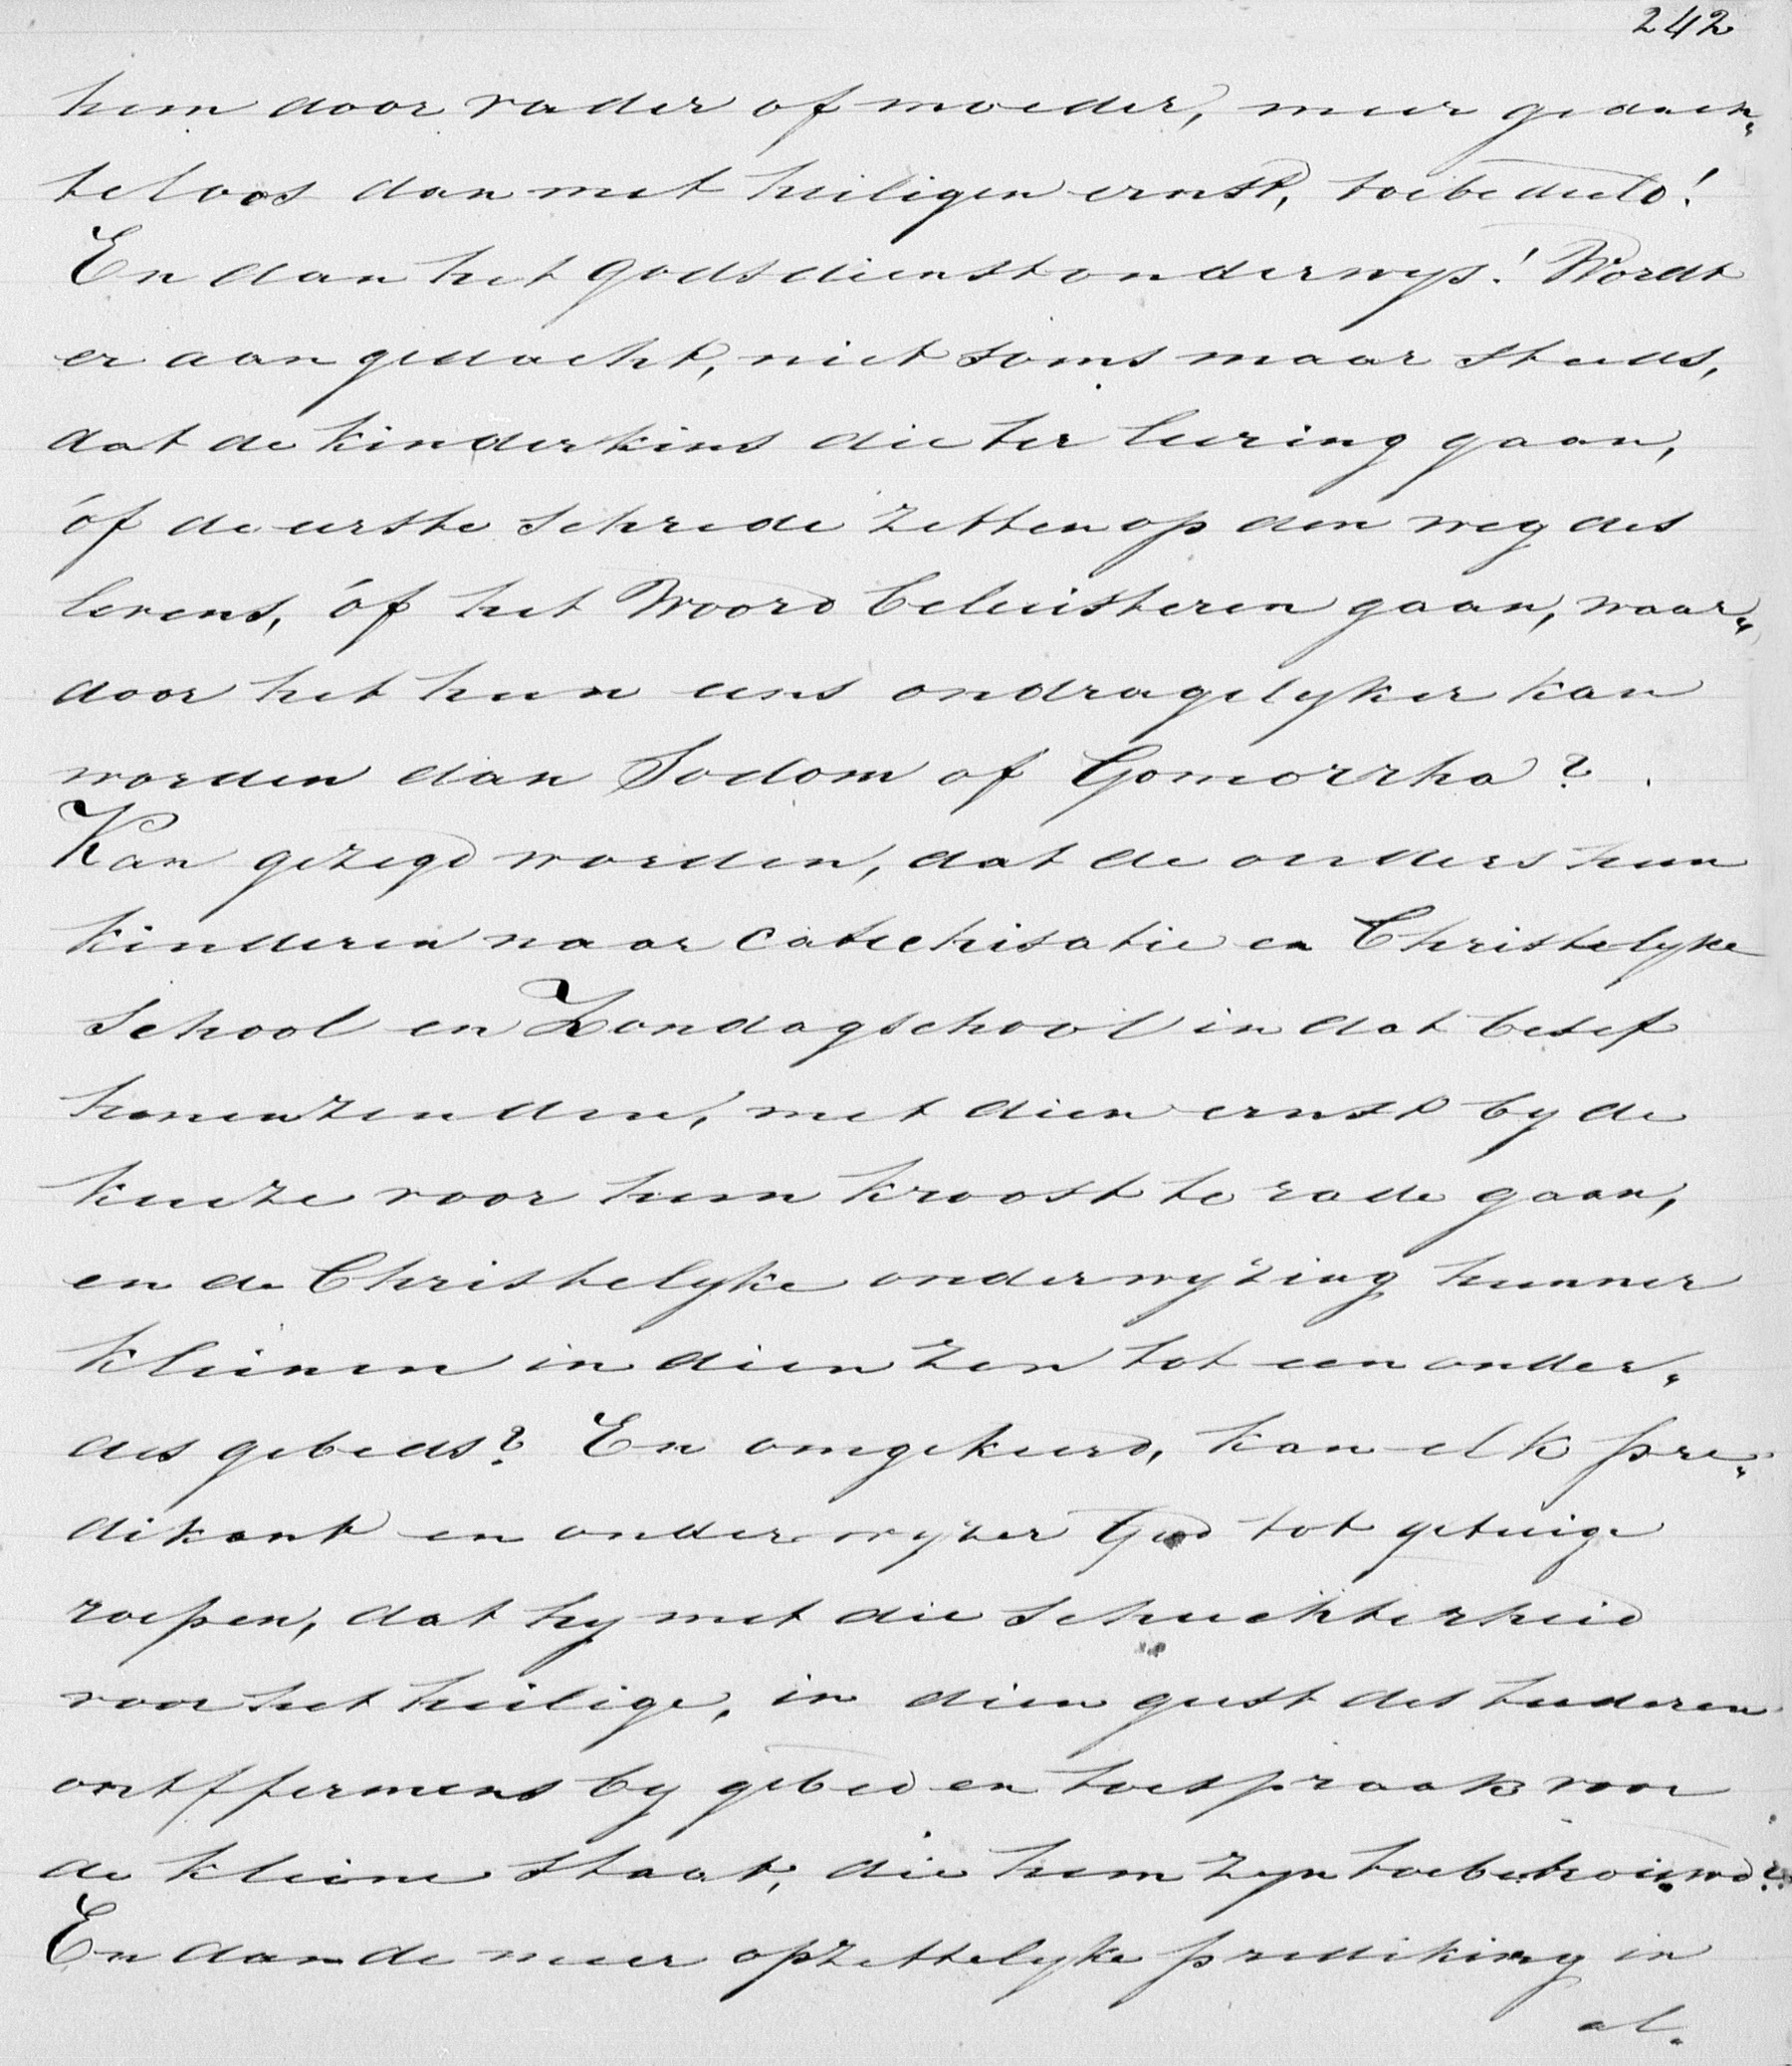 242
hem door vader of moeder, meer gedach„
teloos dan met heiligen ernst, toebedeeld!
En dan het godsdienstonderwys! Wordt
er aan gedacht, niet soms maar steeds,
dat de kinderkens die ter leering gaan,
óf de eerste schrede zetten op den weg des
levens, óf het Woord beluisteren gaan, waar„
door het hun eens ondragelyker kan
worden dan Sodom of Gomorrha?
Kan gezegd worden, dat de ouders hun
kinderen naar catechisatie en Christelyke
school en Zondagschool in dat besef
henenzenden, met dien ernst by de
keuze voor hun kroost te rade gaan,
en de Christelyke onderwyzing hunner
kleinen in dien zin tot een onder„
des gebeds? En omgekeerd, kan elk pre„
dikant en onderwyzer God tot getuige
roepen, dat hy met die schuchterheid
voor het heilige, in dien geest des teederen
ontffermens by gebed en toespraak voor
de kleine staat, die hem zyn toebetrouwd?
En dan de meer opzettelyke prediking in
al.